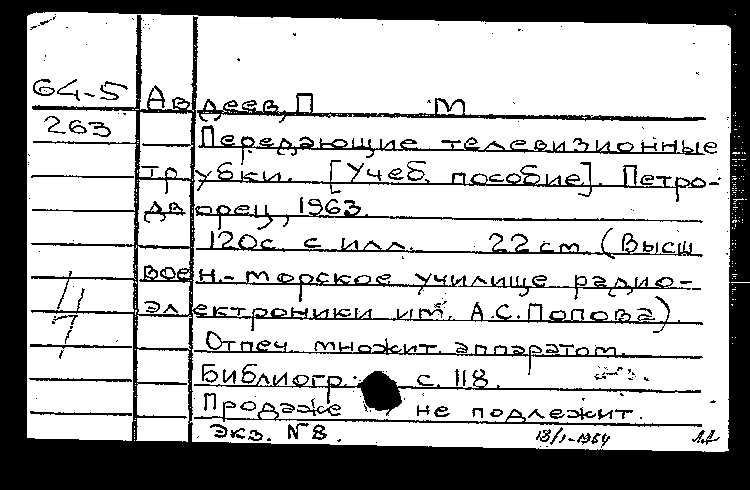 64-5 Авдеев, П М
263 Передающие телевизионные
трубки. [Учеб. пособие]. Петро-
дворец, 1963.
120с. с илл. 22 cm. (Высш
воен.-морское училище радио-
электроники им. А.С.Попова).
Отпеч. множит. аппаратом.
Библиогр.: с. 118.
Продаже не подлежит.
Экз. №8. 13/I-1964